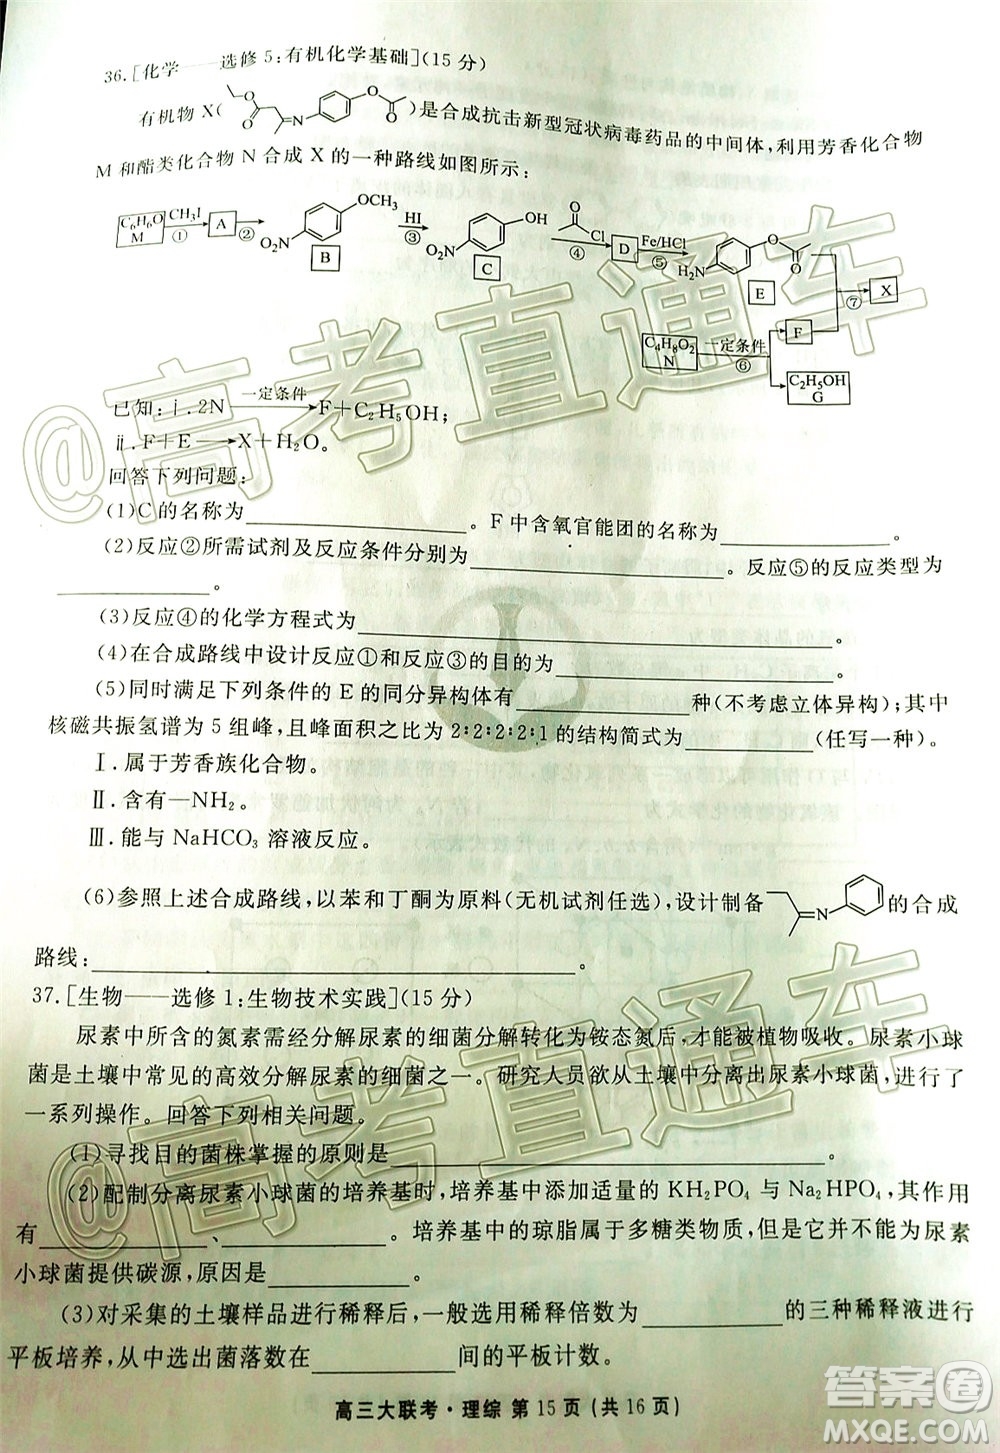 36.[化学——选修5:有机化学基础](15分)
有机物X( O O N O O )是合成抗击新型冠状病毒药品的中间体,利用芳香化合物
M和酯类化合物N合成X的一种路线如图所示:
C₆H₆O M CH₃I ① A ② O₂N OCH₃ B HI ③ O₂N OH C O Cl ④ D Fe/HCl ⑤ H₂N O O E ⑦ X
C₄H₈O₂ N 一定条件 ⑥ F
C₂H₅OH G
已知:ⅰ.2N 一定条件 → F+C₂H₅OH;
ⅱ.F+E → X+H₂O。
回答下列问题:
(1)C的名称为________。F中含氧官能团的名称为________。
(2)反应②所需试剂及反应条件分别为________。反应⑤的反应类型为
________。
(3)反应④的化学方程式为________。
(4)在合成路线中设计反应①和反应③的目的为________。
(5)同时满足下列条件的E的同分异构体有________种(不考虑立体异构);其中
核磁共振氢谱为5组峰,且峰面积之比为2∶2∶2∶2∶1的结构简式为________(任写一种)。
Ⅰ.属于芳香族化合物。
Ⅱ.含有—NH₂。
Ⅲ.能与NaHCO₃溶液反应。
(6)参照上述合成路线,以苯和丁酮为原料(无机试剂任选),设计制备 N 的合成
路线:________。
37.[生物——选修1:生物技术实践](15分)
尿素中所含的氮素需经分解尿素的细菌分解转化为铵态氮后,才能被植物吸收。尿素小球
菌是土壤中常见的高效分解尿素的细菌之一。研究人员欲从土壤中分离出尿素小球菌,进行了
一系列操作。回答下列相关问题。
(1)寻找目的菌株掌握的原则是________。
(2)配制分离尿素小球菌的培养基时,培养基中添加适量的KH₂PO₄与Na₂HPO₄,其作用
有________、________。培养基中的琼脂属于多糖类物质,但是它并不能为尿素
小球菌提供碳源,原因是________。
(3)对采集的土壤样品进行稀释后,一般选用稀释倍数为________的三种稀释液进行
平板培养,从中选出菌落数在________间的平板计数。
高三大联考·理综 第15页(共16页)
@高考直通车
@高考直通车
答案圈
MXQE.COM